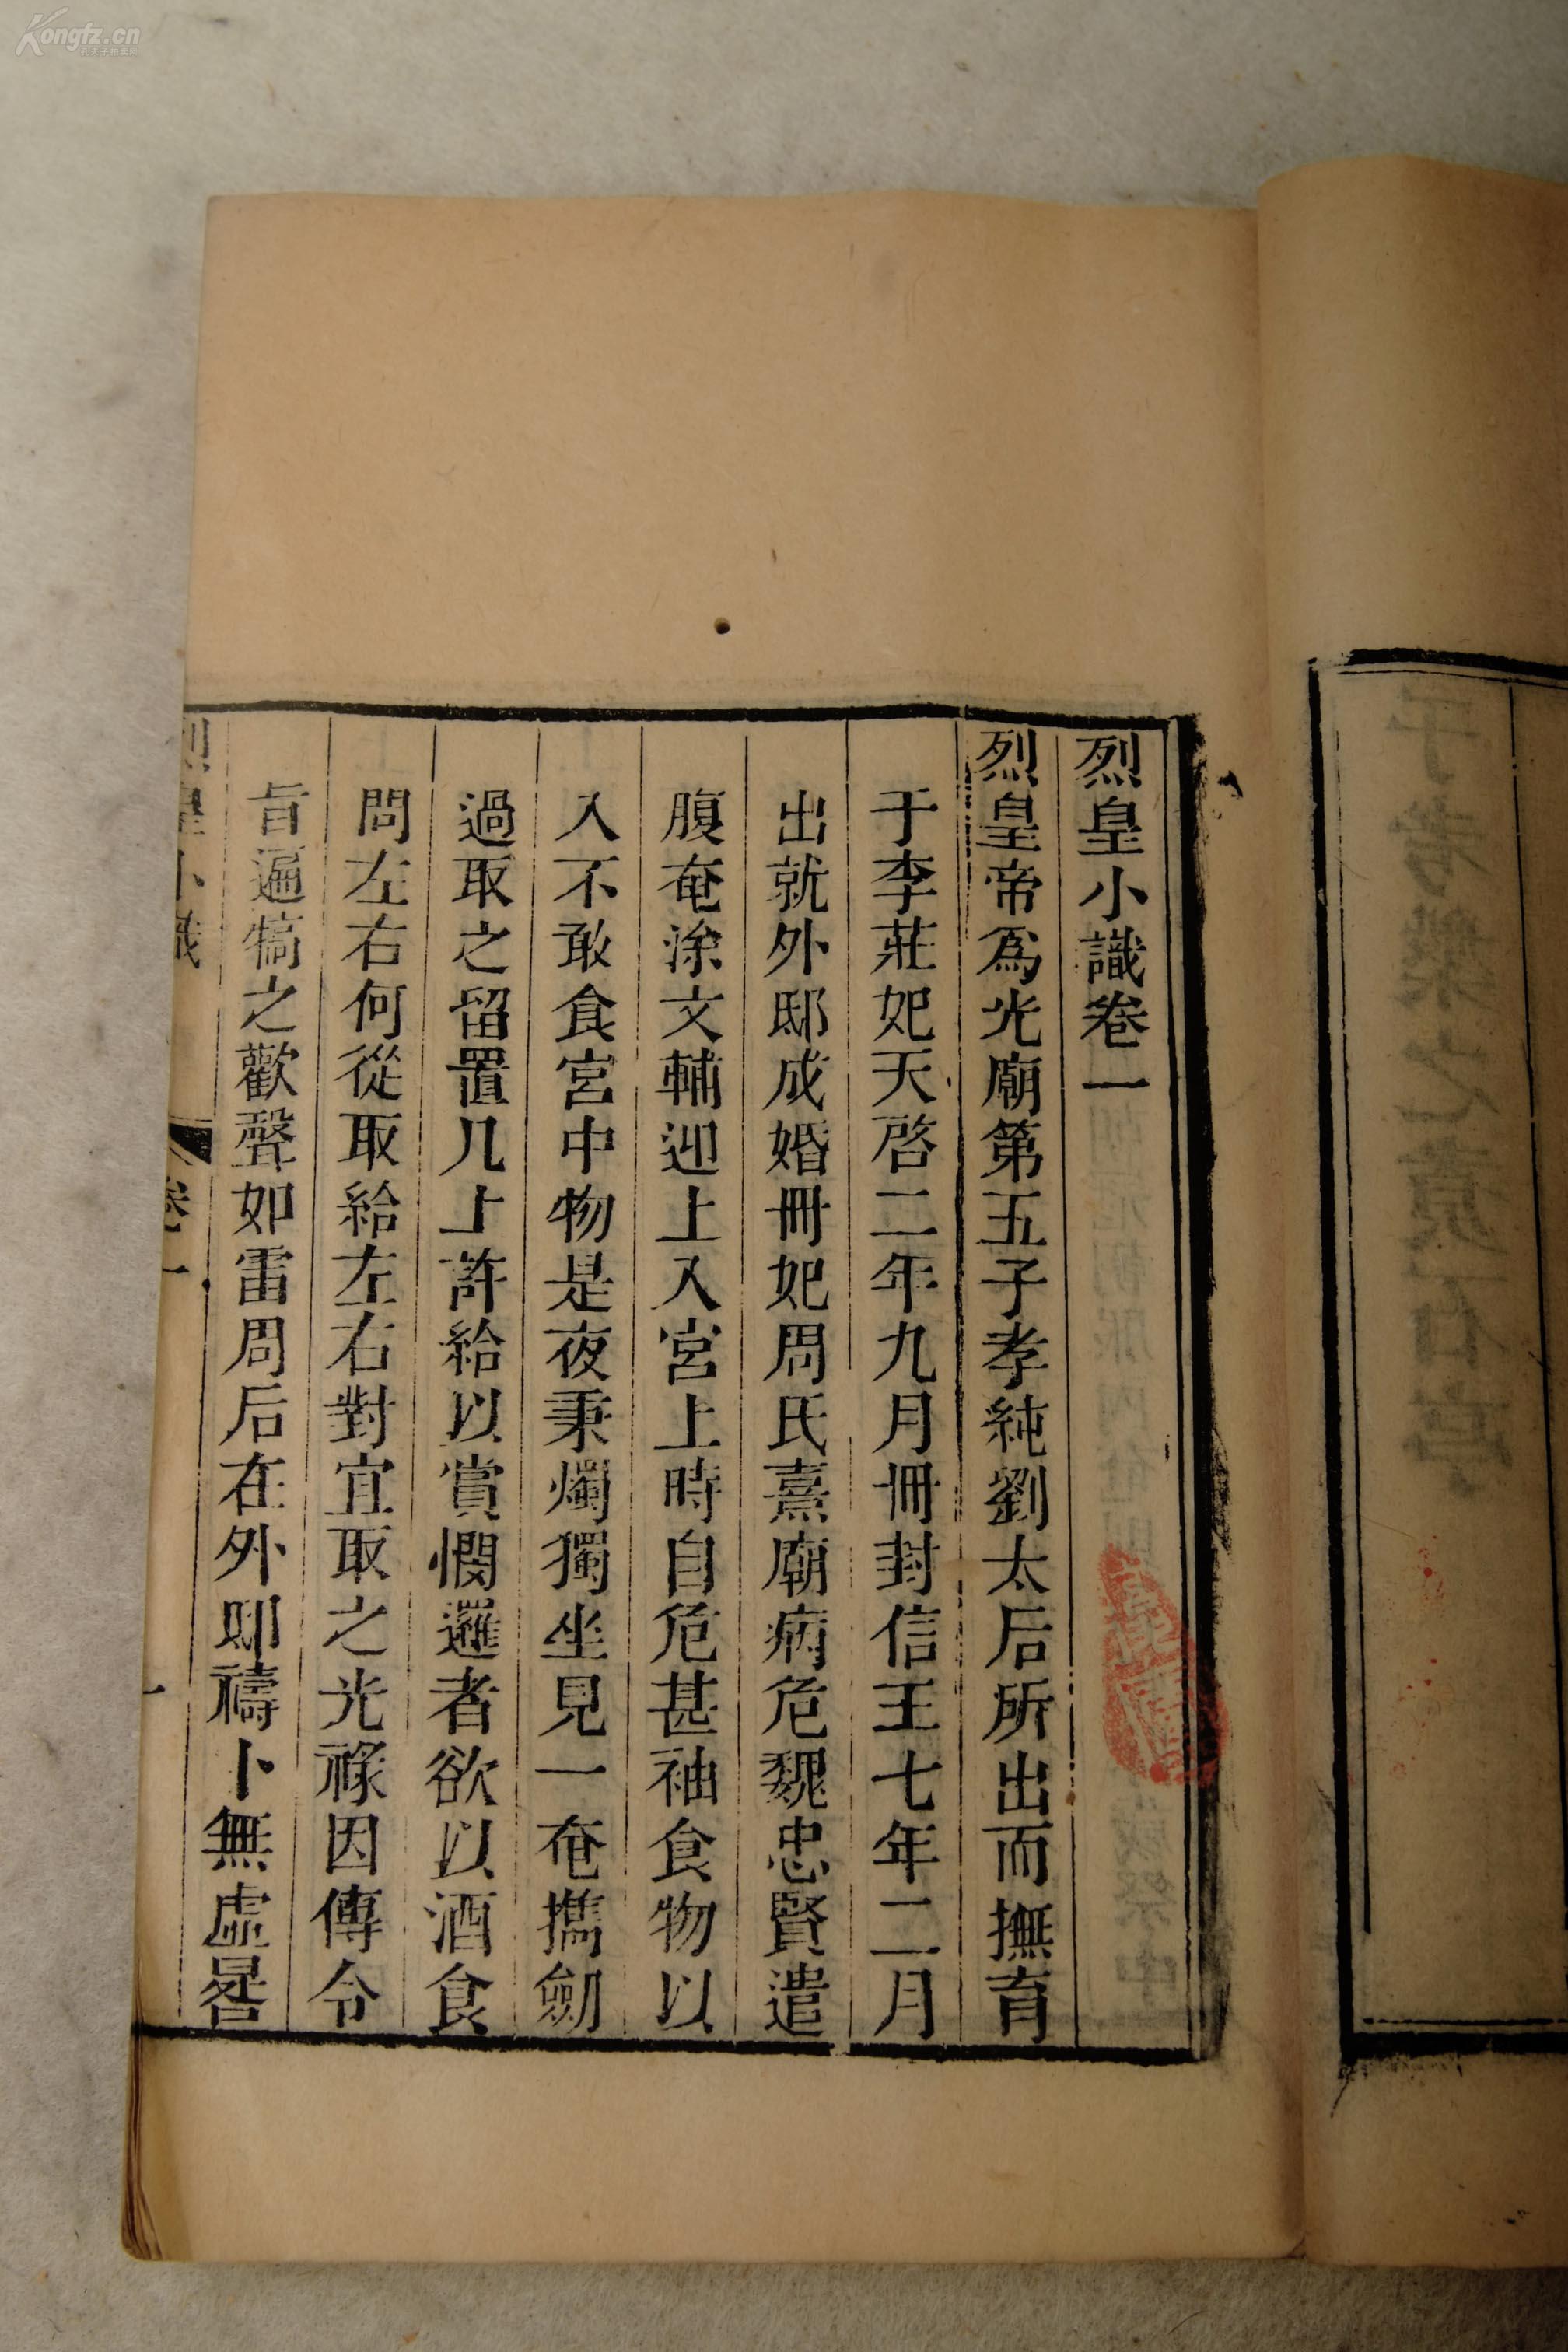 烈皇小識卷一
烈皇帝爲光廟第五子孝純劉太后所出而撫育
于李莊妃天啓二年九月冊封信王七年二月
出就外邸成婚冊妃周氏熹廟病危魏忠賢遣
腹奄涂文輔迎上入宮上時自危甚袖食物以
入不敢食宮中物是夜秉燭獨坐見一奄攜劒
過取之留置几上許給以賞憫邏者欲以酒食
問左右何從取給左右對宜取之光祿因傳令
旨遍犒之歡聲如雷周后在外邸禱卜無虛晷
烈皇小識
卷一
一
Kongfz.cn